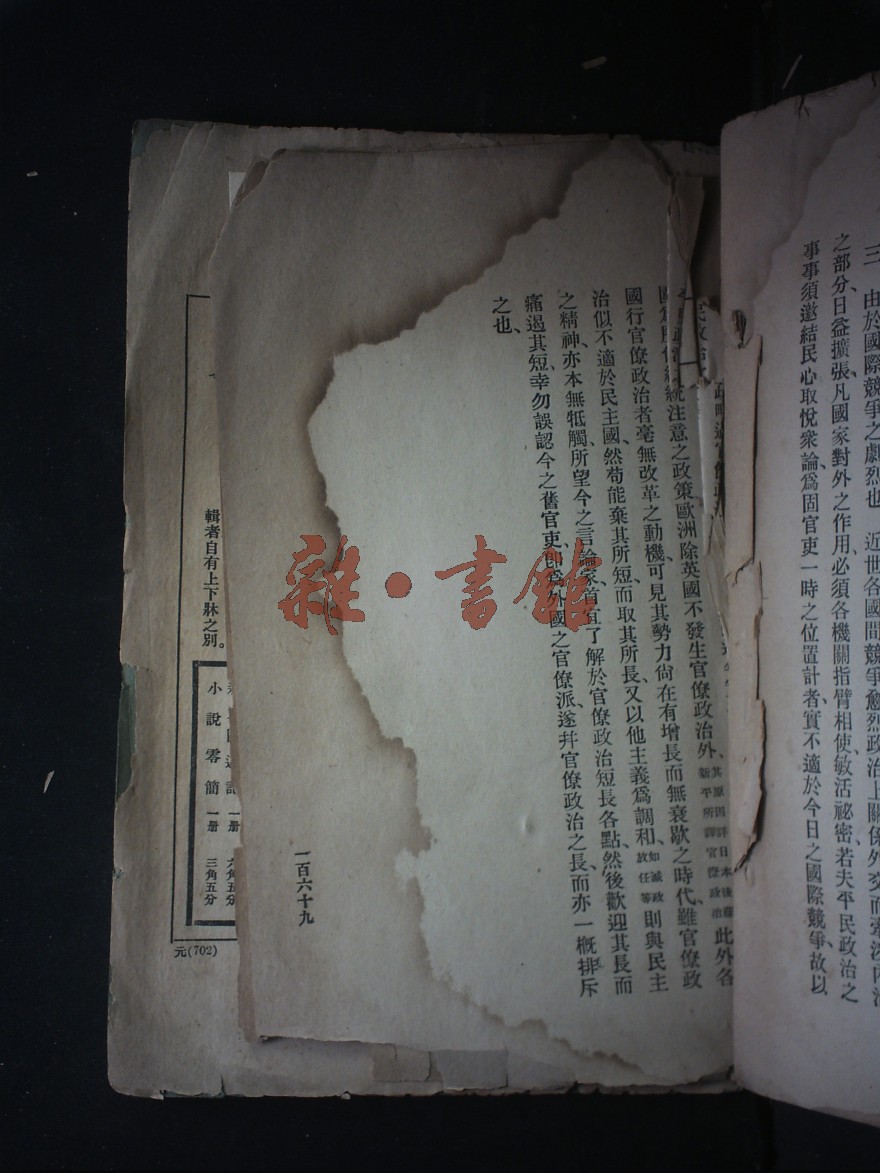 三　由於國際競爭之劇烈也　近世各國間競爭愈烈政治上關係外交而牽涉內治
之部分、日益擴張、凡國家對外之作用、必須各機關指臂相使、敏活祕密、若夫平民政治之
事事須邀結民心、取悅衆論、爲固官吏一時之位置計者、實不適於今日之國際競爭、故以
統注意之政策、歐洲除英國不發生官僚政治外、其原因詳日本後藤新平所譯官僚政治此外各
國行官僚政治者、毫無改革之動機、可見其勢力尙在有增長而無衰歇之時代、雖官僚政
治似不適於民主國、然苟能棄其所短、而取其所長、又以他主義爲調和、如減政放任等則與民主
之精神、亦本無牴觸、所望今之言論家、首宜了解於官僚政治短長各點、然後歡迎其長、而
痛遏其短、幸勿誤認今之舊官吏、卽爲外國之官僚派、遂幷官僚政治之長、而亦一槪排斥
之也、
一百六十九
輯者自有上下牀之別。
一册　六角五分
小說零簡　一册　三角五分
元(702)
雜·書館